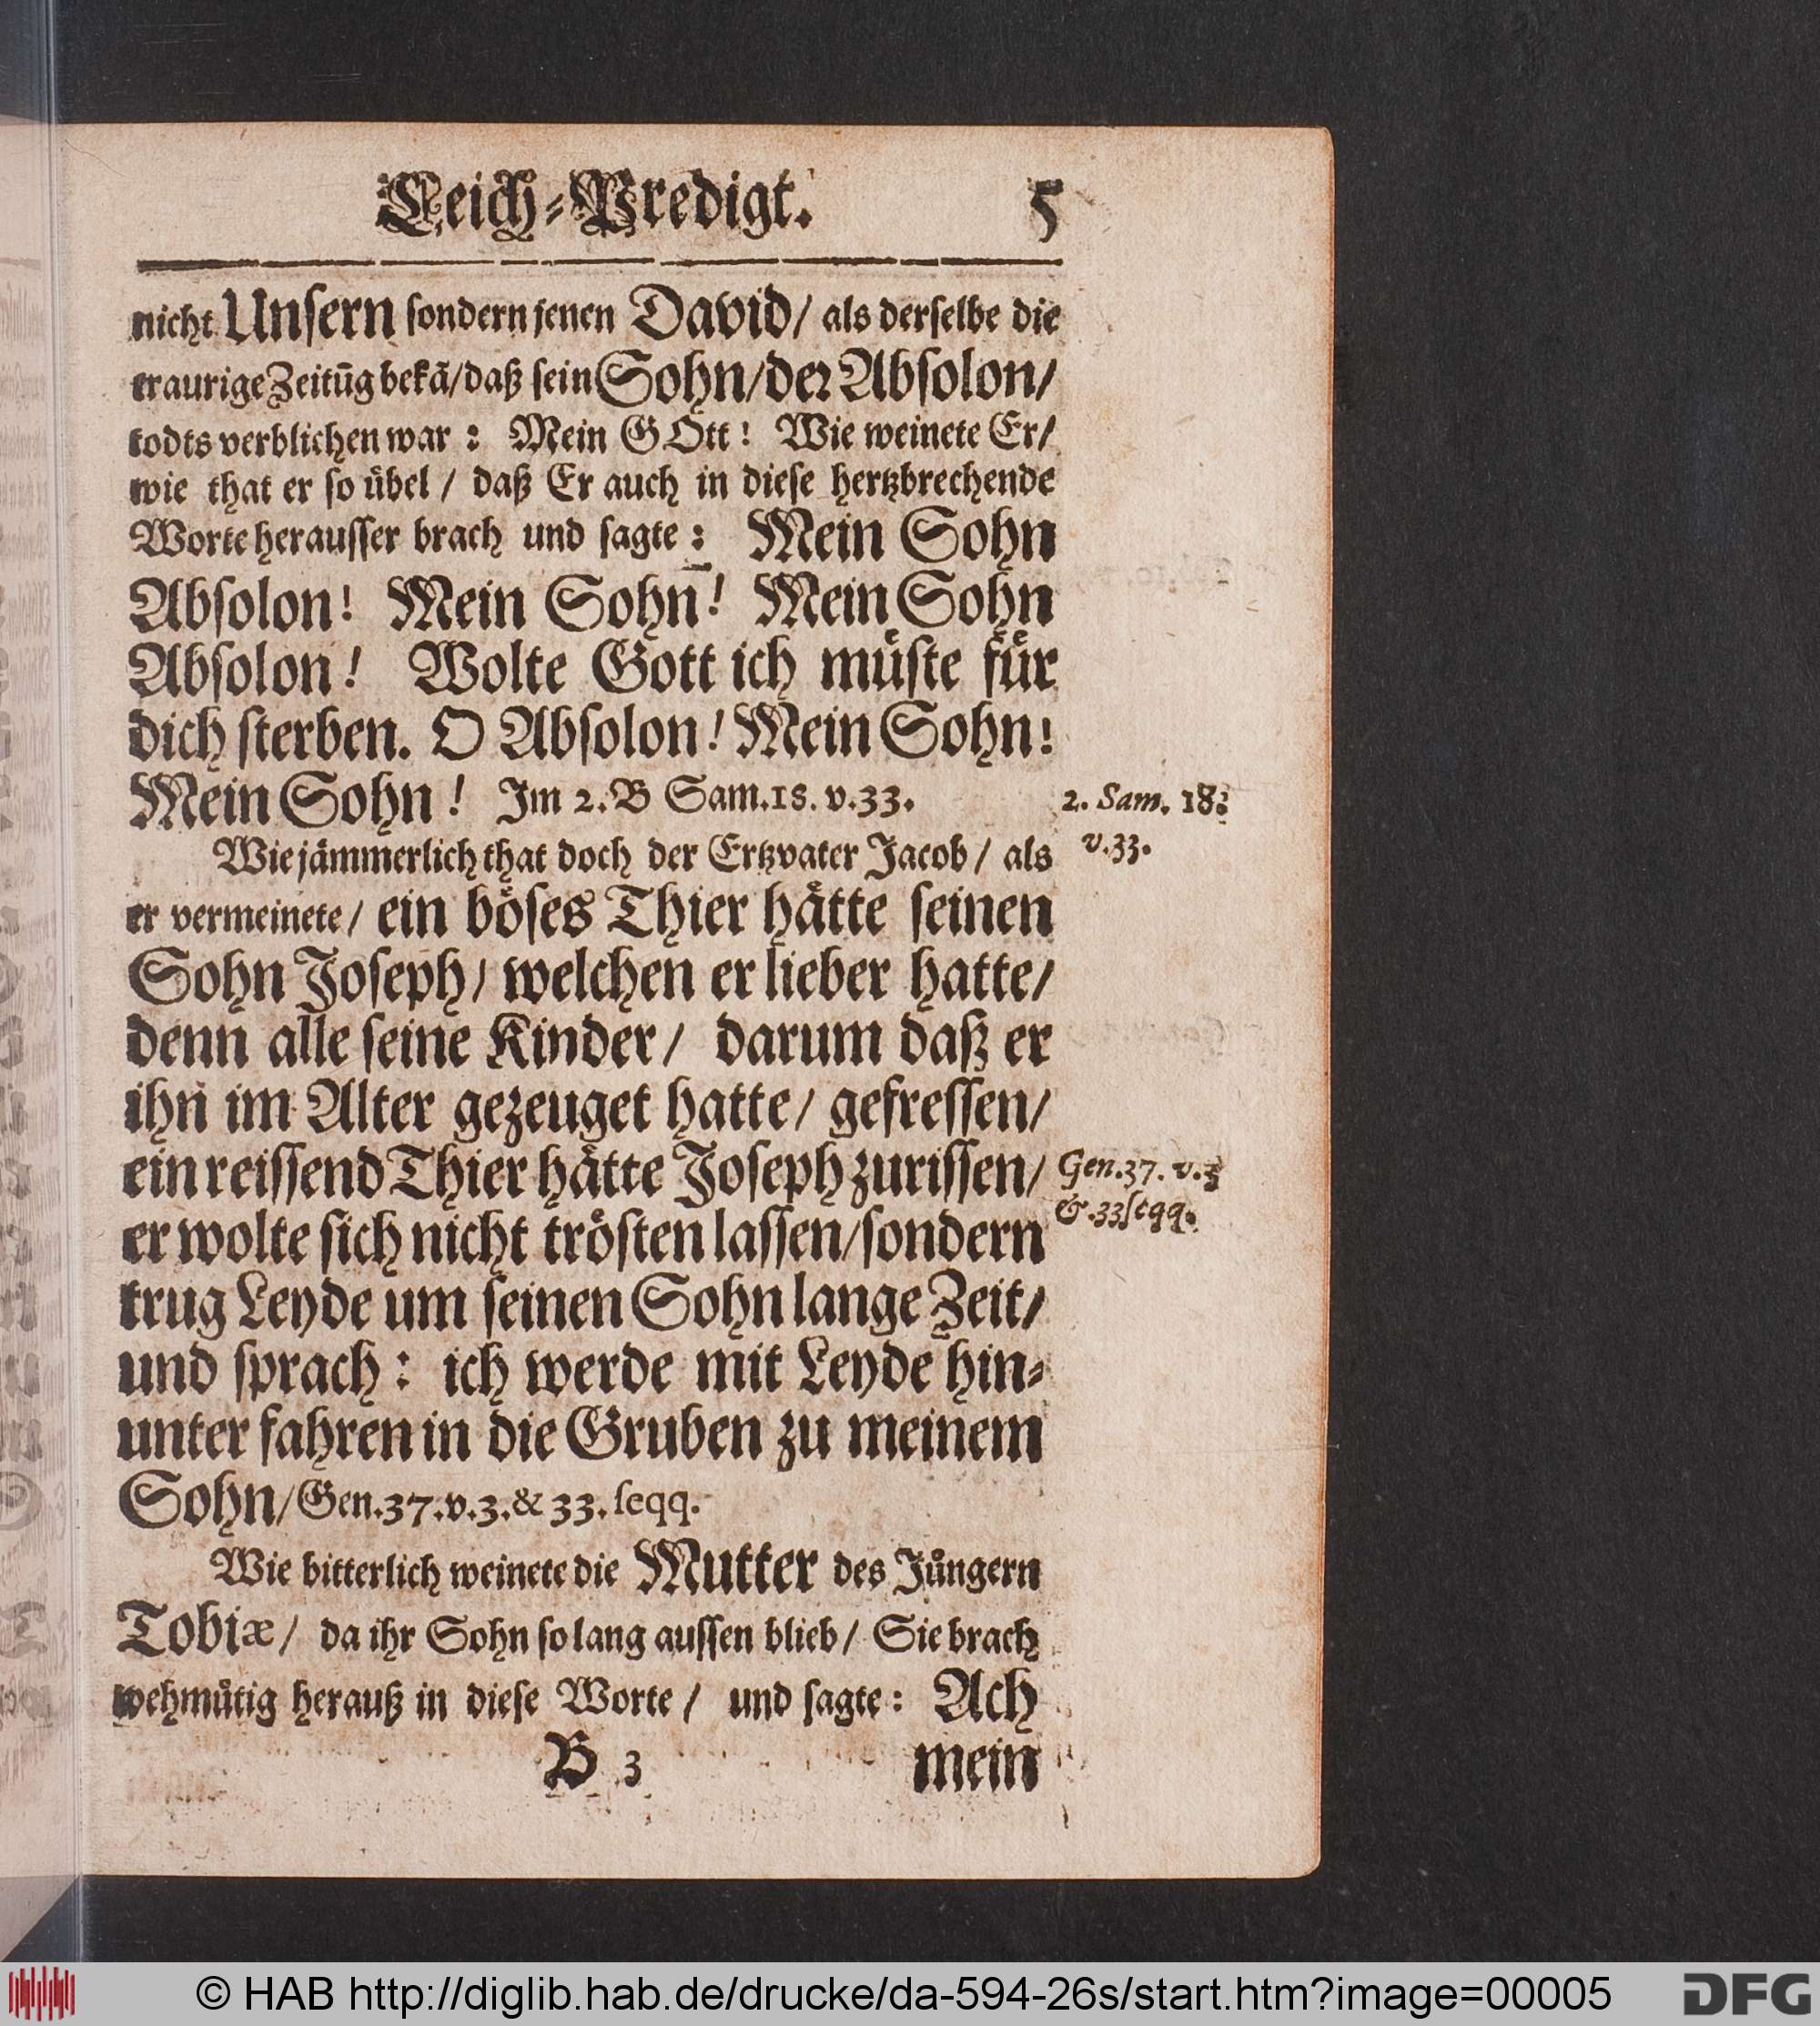 Leich-Predigt. 5
nicht Unſern ſondern jenen David/ als derſelbe die
traurige Zeitūg bekā/daß ſein Sohn/der Abſolon/
todts verblichen war : Mein GOtt! Wie weinete Er/
wie that er ſo uͤbel / daß Er auch in dieſe hertzbrechende
Worte herauſſer brach und ſagte : Mein Sohn
Abſolon! Mein Sohn! Mein Sohn
Abſolon! Wolte Gott ich muͤſte fuͤr
dich ſterben. O Abſolon! Mein Sohn!
Mein Sohn! Im 2. B Sam.18. v.33.
2. Sam. 18.
v.33.
Wie jaͤmmerlich that doch der Ertzvater Jacob/ als
er vermeinete/ ein boͤſes Thier haͤtte ſeinen
Sohn Joſeph/ welchen er lieber hatte/
denn alle ſeine Kinder/ darum daß er
ihn im Alter gezeuget hatte/ gefreſſen/
ein reiſſend Thier haͤtte Joſeph zuriſſen/
Gen.37. v.3
&.33ſeqq.
er wolte ſich nicht troͤſten laſſen/ſondern
trug Leyde um ſeinen Sohn lange Zeit/
und ſprach: ich werde mit Leyde hin-
unter fahren in die Gruben zu meinem
Sohn/Gen.37.v.3.& 33. ſeqq.
Wie bitterlich weinete die Mutter des Juͤngern
Tobiæ/ da ihr Sohn ſo lang auſſen blieb/ Sie brach
wehmuͤtig herauß in dieſe Worte/ und ſagte: Ach
B 3 mein
© HAB http://diglib.hab.de/drucke/da-594-26s/start.htm?image=00005
DFG